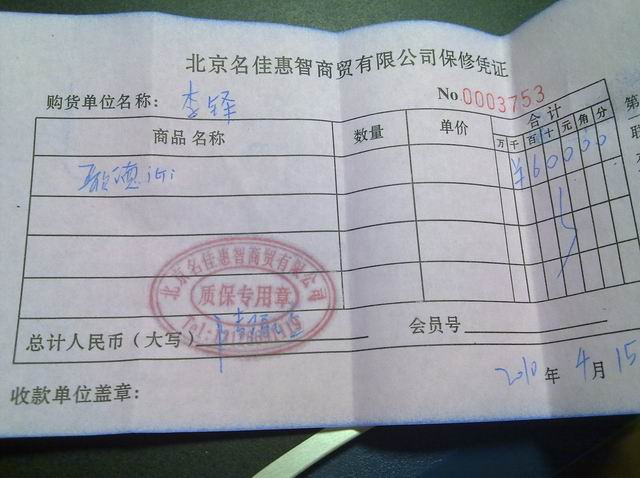 北京名佳惠智商贸有限公司保修凭证
购货单位名称：李铎
No.0003753
商品名称 数量 单价 合计
万 千 百 十 元 角 分
¥60000
北京名佳惠智商贸有限公司
质保专用章
总计人民币（大写）
会员号
2010年4月15
收款单位盖章：
第
联